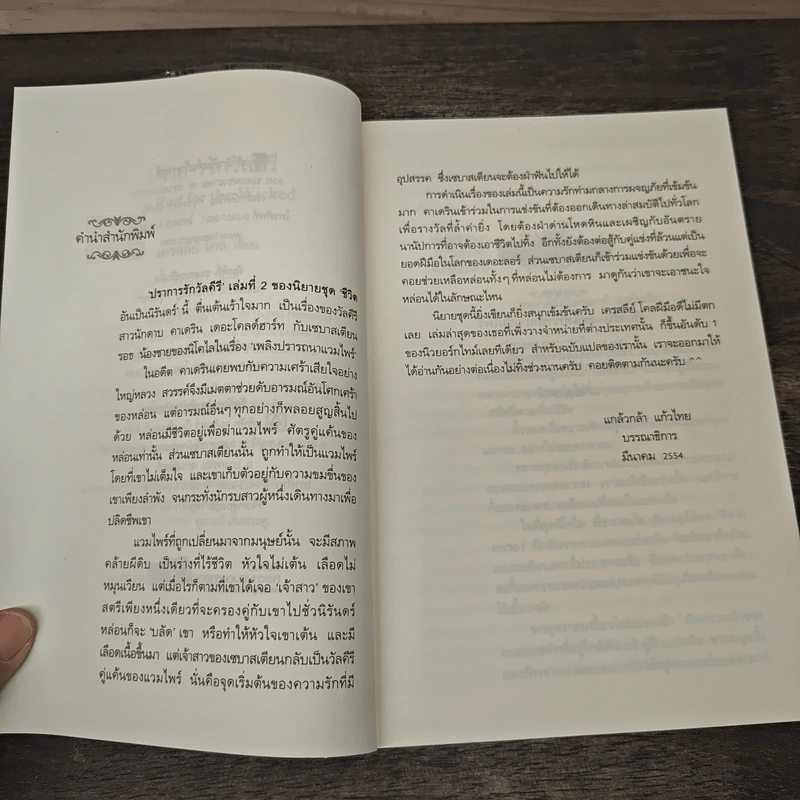 คำนำสำนักพิมพ์
'ปราการรักวัลคีรี' เล่มที่ 2 ของนิยายชุด 'ชีวิต
อันเป็นนิรันดร์' นี้ ตื่นเต้นเร้าใจมาก เป็นเรื่องของวัลคีรี
สาวนักดาบ คาเดริน เดอะโคลด์ฮาร์ท กับเซบาสเตียน
รอธ น้องชายของนิโคไลในเรื่อง 'เพลิงปรารถนาแวมไพร์'
ในอดีต คาเดรินเคยพบกับความเศร้าเสียใจอย่าง
ใหญ่หลวง สวรรค์จึงมีเมตตาช่วยดับอารมณ์อันโศกเศร้า
ของหล่อน แต่อารมณ์อื่นๆ ทุกอย่างก็พลอยสูญสิ้นไป
ด้วย หล่อนมีชีวิตอยู่เพื่อฆ่าแวมไพร์ ศัตรูคู่แค้นของ
หล่อนเท่านั้น ส่วนเซบาสเตียนนั้น ถูกทำให้เป็นแวมไพร์
โดยที่เขาไม่เต็มใจ และเขาเก็บตัวอยู่กับความขมขื่นของ
เขาเพียงลำพัง จนกระทั่งนักรบสาวผู้หนึ่งเดินทางมาเพื่อ
ปลิดชีพเขา
แวมไพร์ที่ถูกเปลี่ยนมาจากมนุษย์นั้น จะมีสภาพ
คล้ายผีดิบ เป็นร่างที่ไร้ชีวิต หัวใจไม่เต้น เลือดไม่
หมุนเวียน แต่เมื่อไรก็ตามที่เขาได้เจอ 'เจ้าสาว' ของเขา
สตรีเพียงหนึ่งเดียวที่จะครองคู่กับเขาไปชั่วนิรันดร์
หล่อนก็จะ 'บลัด' เขา หรือทำให้หัวใจเขาเต้น และมี
เลือดเนื้อขึ้นมา แต่เจ้าสาวของเซบาสเตียนกลับเป็นวัลคีรี
คู่แค้นของแวมไพร์ นั่นคือจุดเริ่มต้นของความรักที่มี
อุปสรรค ซึ่งเซบาสเตียนจะต้องฝ่าฟันไปให้ได้
การดำเนินเรื่องของเล่มนี้เป็นความรักท่ามกลางการผจญภัยที่เข้มข้น
มาก คาเดรินเข้าร่วมในการแข่งขันที่ต้องออกเดินทางล่าสมบัติไปทั่วโลก
เพื่อรางวัลที่ล้ำค่ายิ่ง โดยต้องฝ่าด่านโหดหินและเผชิญกับอันตราย
นานัปการที่อาจต้องเอาชีวิตไปทิ้ง อีกทั้งยังต้องต่อสู้กับคู่แข่งที่ล้วนแต่เป็น
ยอดฝีมือในโลกของเดอะลอร์ ส่วนเซบาสเตียนก็เข้าร่วมแข่งขันด้วยเพื่อจะ
คอยช่วยเหลือหล่อนทั้งๆ ที่หล่อนไม่ต้องการ มาดูกันว่าเขาจะเอาชนะใจ
หล่อนได้ในลักษณะไหน
นิยายชุดนี้ยิ่งเขียนก็ยิ่งสนุกเข้มข้นครับ เครสลีย์ โคลฝีมือดีไม่มีตก
เลย เล่มล่าสุดของเธอที่เพิ่งวางจำหน่ายที่ต่างประเทศนั้น ก็ขึ้นอันดับ 1
ของนิวยอร์กไทม์เลยทีเดียว สำหรับฉบับแปลของเรานั้น เราจะออกมาให้
ได้อ่านกันอย่างต่อเนื่องไม่ทิ้งช่วงนานครับ คอยติดตามกันนะครับ ^^
แกล้วกล้า แก้วไทย
บรรณาธิการ
มีนาคม 2554